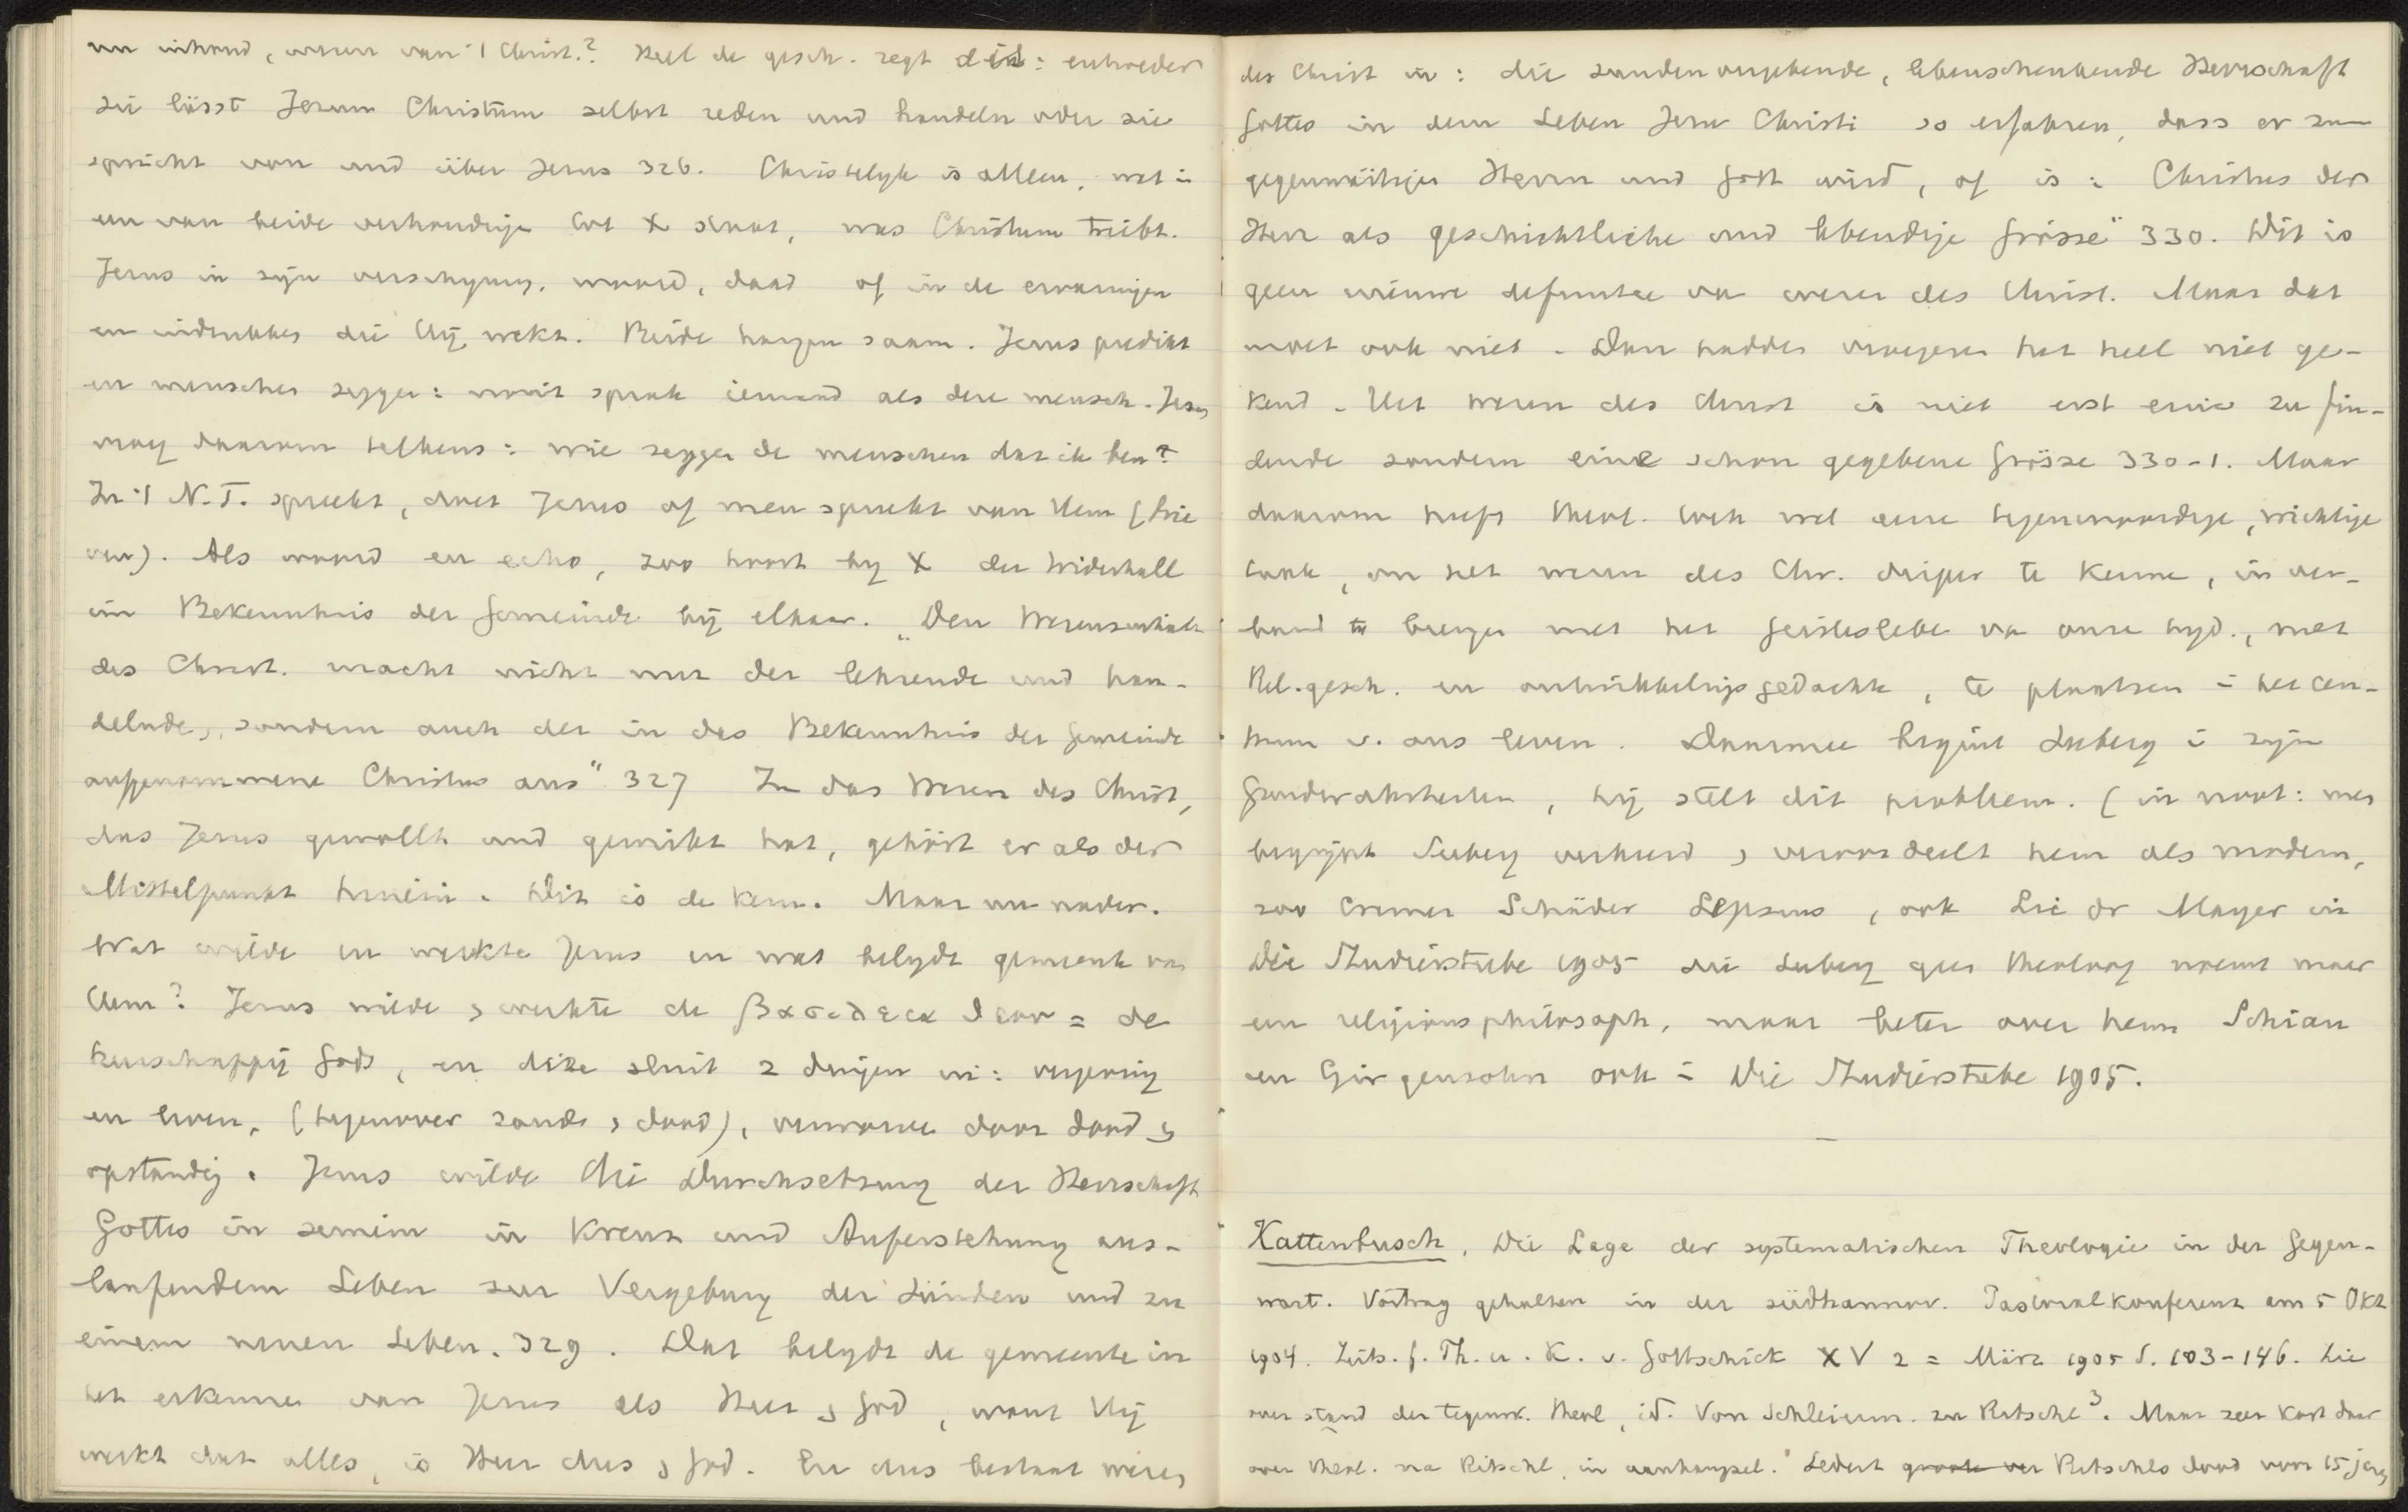 nu inhoud, wezen van 't Christ.? Heel de gesch. zegt dit: entweder
sie lässt Jesum Christum selbst reden und handeln oder sie
spricht von und über Jesus 326. Christelyk is alleen, wat in
een van beide verhoudingen tot X staat, was Christum treibt.
Jezus in zijn verschyning, woord, daad of in de ervaringen
en indrukken die Hij wekt. Beide hangen saam. Jezus predikt
en menschen zeggen: nooit sprak iemand als deze mensch. Jezus
vraag daarom telkens: wie zeggen de menschen dat ik ben?
In 't N.T. spreekt, doet Jezus of men spreekt van Hem (brie
ven). Als woord en echo, zoo hoort by X der Widerhall
im Bekenntnis der Gemeinde bij elkaar. „Den Wesensinhalt
des Christ. macht nicht nur der lehrende und han-
delnde, sondern auch der in das Bekenntnis der Gemeinde
aufgenommene Christus aus" 327 In das Wesen des Christ,
das Jesus gewollt und gewirkt hat, gehört er als der
Mittelpunkt hinein. Dit is de kern. Maar nu nader.
Wat wilde en werkte Jezus en wat belydt gemeente van
Hem? Jezus wilde en werkte de βασιλεια θεου = de
heerschappij Gods, en deze sluit 2 dingen in: vergeving
en leven, (tegenover zonde en dood), verworven door dood en
opstanding. Jezus wilde die Durchsetzung der Herrschaft
Gottes in seinem in Kreuz und Auferstehung aus-
laufendem Leben zur Vergebung der Sünden und zu
einem neuen Leben. 329. Dat belydt de gemeente in
het erkennen van Jezus als Heer en God, want Hij
werkt dat alles, is Heer dus en God. En dus bestaat wezen
des Christ in: die sündenvergebende, lebenschenkende Herrschaft
Gottes in dem Leben Jesu Christi so erfahren, dass er zum
gegenwärtigen Herrn und Gott wird, of is: Christus der
Herr als geschichtliche und lebendige Grösse" 330. Dit is
geen nieuwe definitie van wezen des Christ. Maar dat
moet ook niet. Dan hadden vroegeren het heel niet ge-
kend. Het wezen des Christ is niet erst eine zu fin-
dende sondern eine schon gegebene Grösse 330-1. Maar
daarom heeft Theol. toch wel eene tegenwoordige, wichtige
taak, om het wezen des Chr. dieper te kennen, in ver-
band te brengen met het Geistesleben van onze tyd, met
Rel.gesch. en ontwikkelingsgedachte, te plaatsen in het cen-
trum v. ons leven. Daarmee begint Seeberg in zijn
Grundwahrheiten, hij stelt dit probleem. (in noot: men
begrijpt Seeberg verkeerd en veroordeelt hem als modern,
zoo Cremer Schäder Lepsius, ook Lic dr Mayer in
Die Studierstube 1905 die Seeberg geen theoloog noemt maar
een religionsphilosoph, maar beter over hem Schian
en Girgensohn ook in Die Studierstube 1905.
—
Kattenbusch, Die Lage der systematischen Theologie in der Gegen-
wart. Vortrag gehalten in der südhannov. Pastoralkonferenz am 5 Okt
1904. Zeits. f. Th. u. K. v. Gottschick XV 2 = März 1905 S. 103-146. Zie
over stand der tegenw. theol, id. Von Schleierm. zu Ritschl³. Maar zeer kort daar
over theol. na Ritschl, in aanhangsel. Sedert groote ver Ritschls dood voor 15 jaren